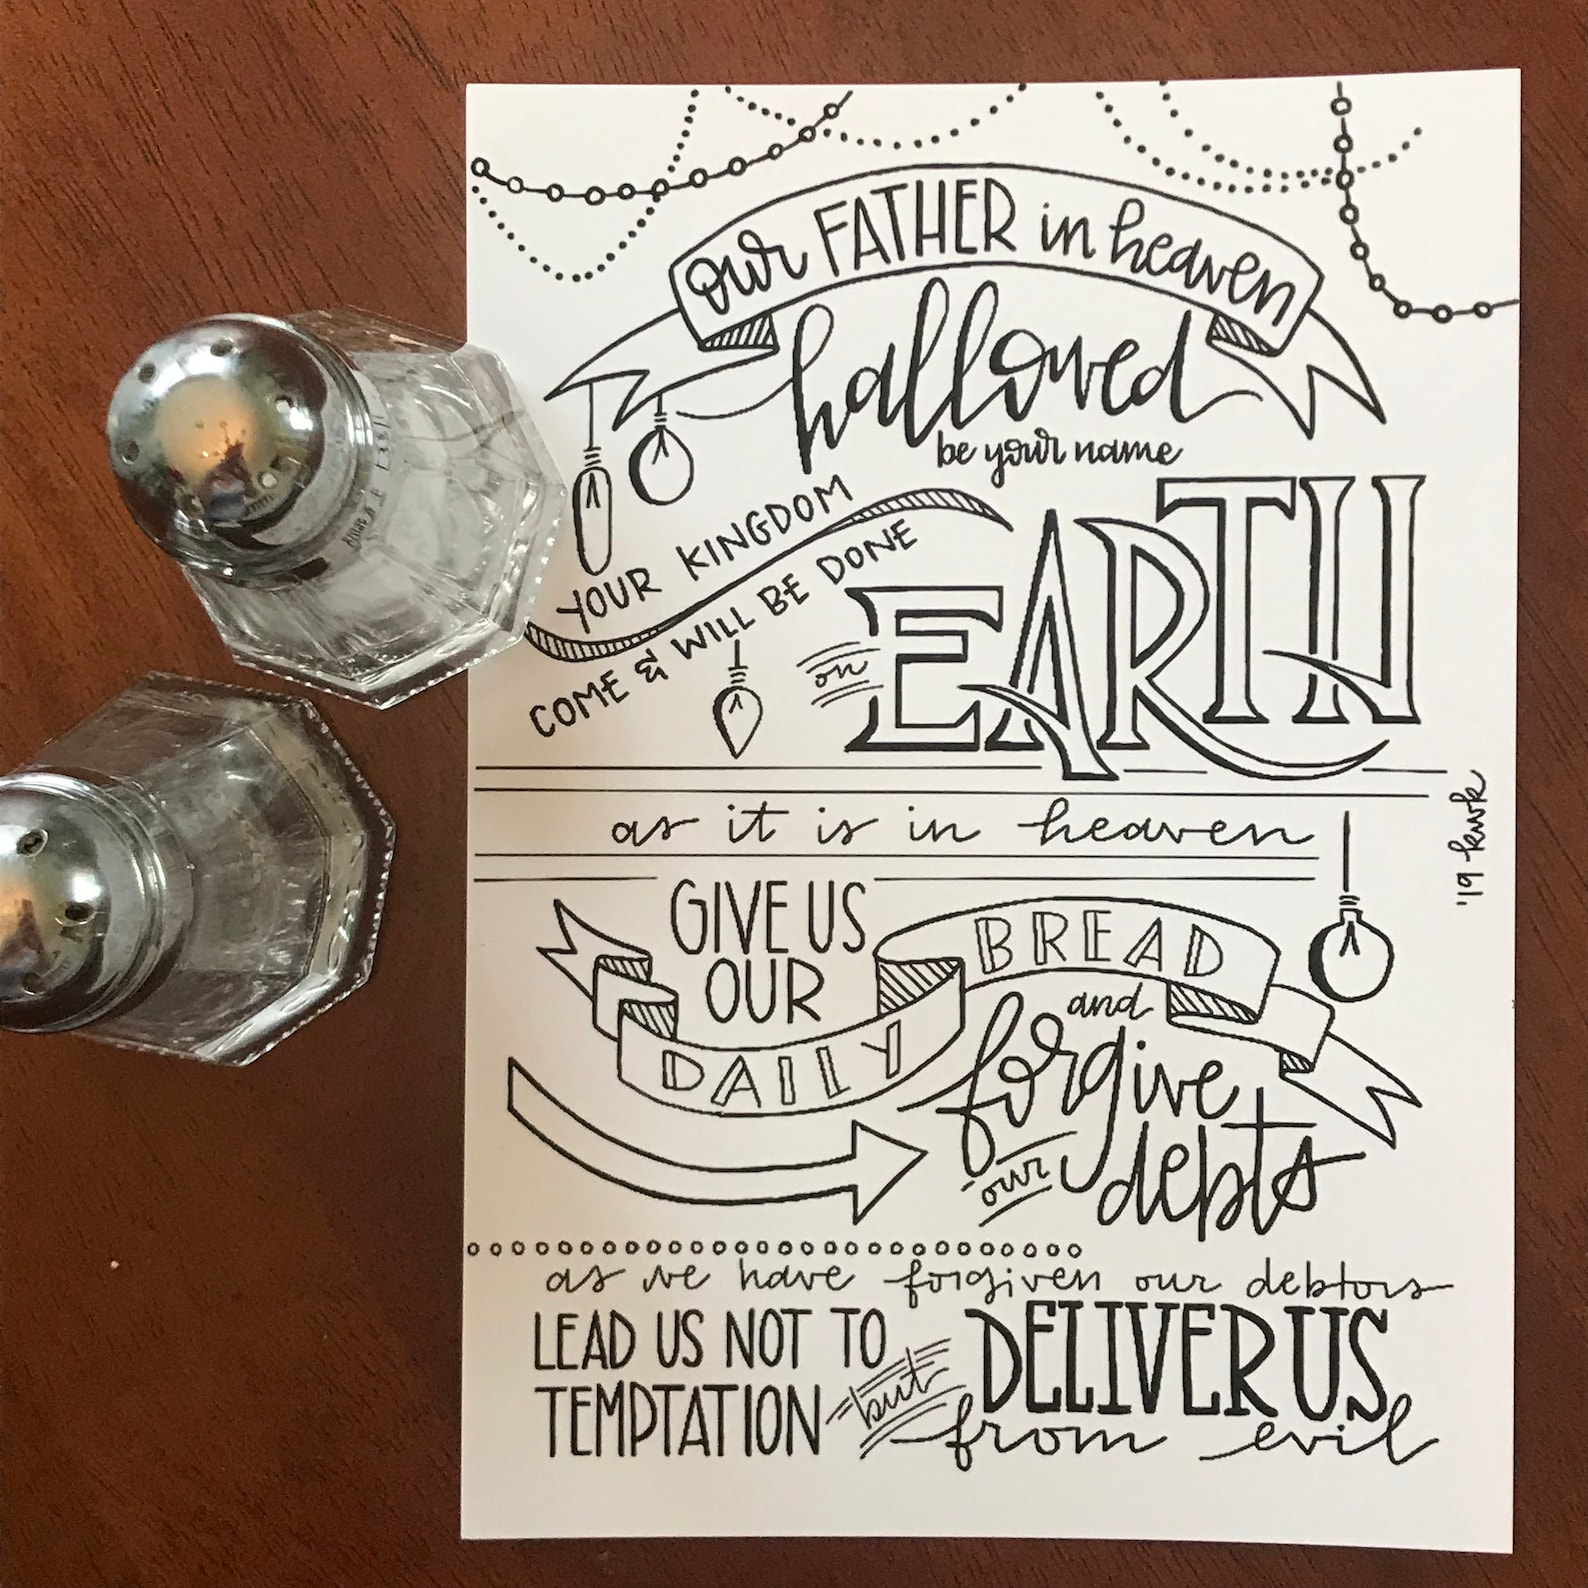 our FATHER in heaven
hallowed
be your name
YOUR KINGDOM
COME & WILL BE DONE
on EARTH
as it is in heaven
'19 kwk
GIVE US
OUR
DAILY BREAD
and
forgive
our debts
as we have forgiven our debtors
LEAD US NOT TO
TEMPTATION
but DELIVER US
from evil